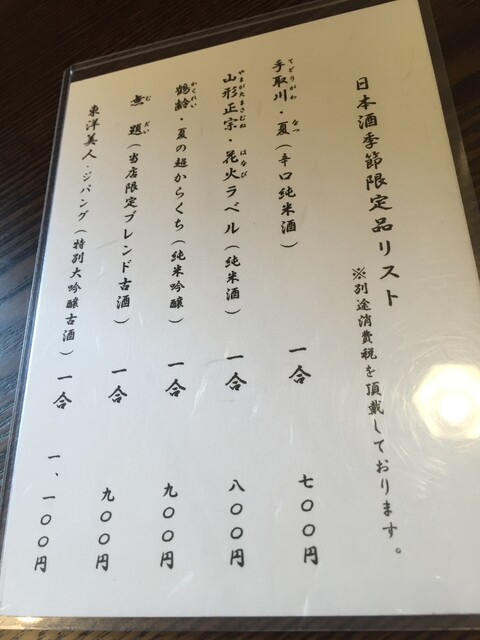 日本酒季節限定品リスト
※別途消費税を頂戴しております。
てどりがわ なつ
手取川・夏(辛口純米酒) 一合 七〇〇円
やまがたまさむね はなび
山形正宗・花火ラベル(純米酒) 一合 八〇〇円
かくれい
鶴齢・夏の超からくち(純米吟醸) 一合 九〇〇円
む だい
無題(当店限定ブレンド古酒) 一合 九〇〇円
東洋美人・ジパング(特別大吟醸古酒) 一合 一、一〇〇円